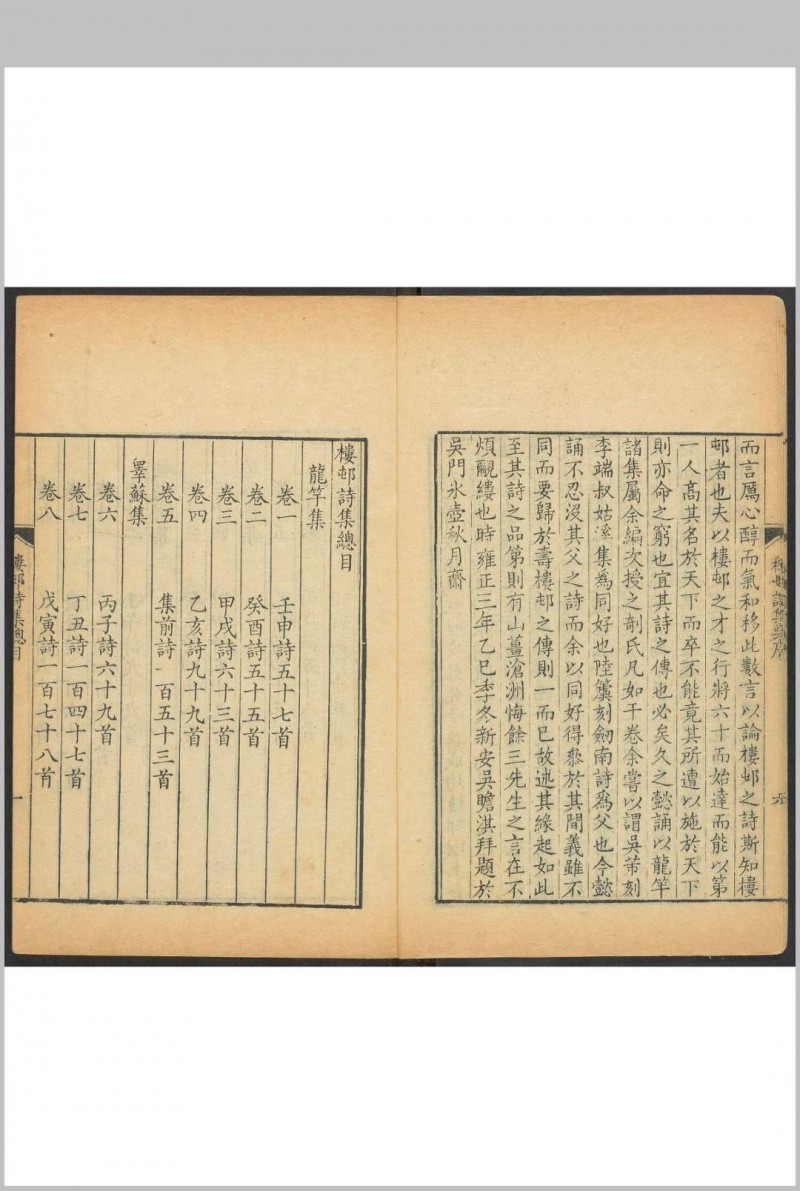 而言厲心醇而氣和移此數言以論樓邨之詩斯知樓
邨者也夫以樓邨之才之行將六十而始達而能以第
一人高其名於天下而卒不能竟其所遭以施於天下
則亦命之窮也宜其詩之傳也必矣久之懿誦以龍竿
諸集屬余編次授之剞氏凡如干卷余嘗以謂吳芾刻
李端叔姑溪集為同好也陸籲刻劒南詩為父也今懿
誦不忍沒其父之詩而余以同好得叅於其間義雖不
同而要歸於壽樓邨之傳則一而已故述其緣起如此
至其詩之品第則有山薑滄洲悔餘三先生之言在不
煩覼縷也時雍正三年乙巳季冬新安吳瞻淇拜題於
吳門氷壺秋月齋
樓邨詩集總目
龍竿集
卷一 壬申詩五十七首
卷二 癸酉詩五十五首
卷三 甲戌詩六十三首
卷四 乙亥詩九十九首
卷五 集前詩一百五十三首
睪蘇集
卷六 丙子詩六十九首
卷七 丁丑詩一百四十七首
卷八 戊寅詩一百七十八首
樓邨詩集總目 一